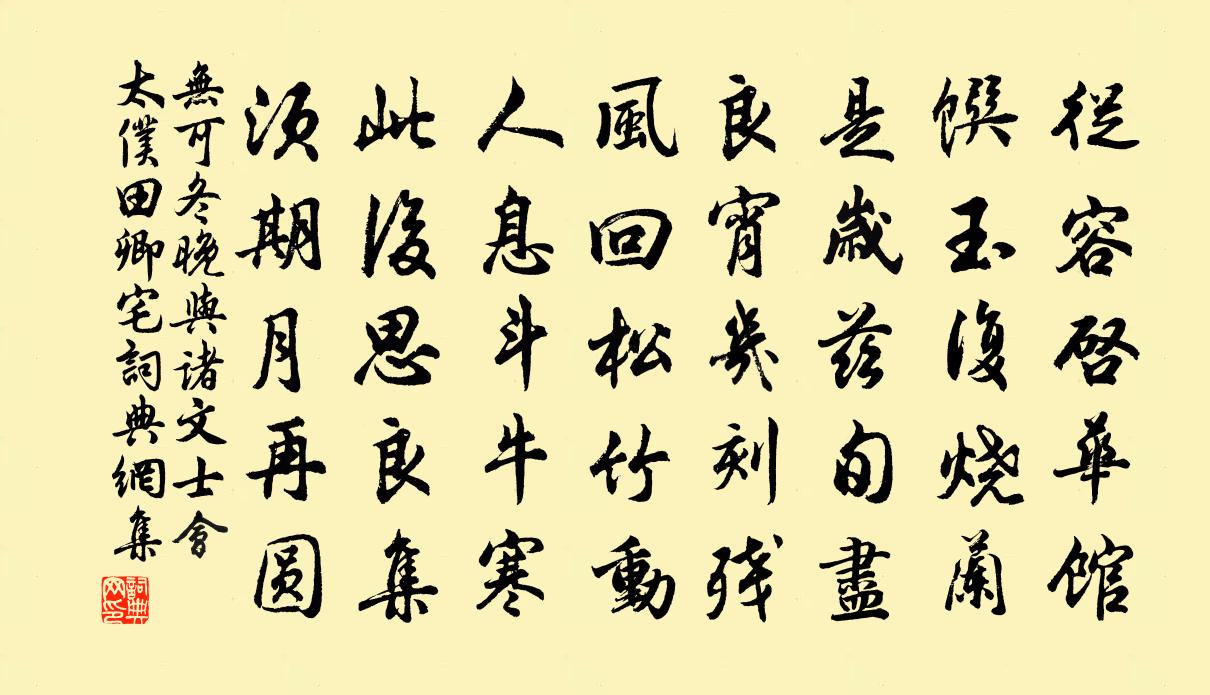 從容啓華館
饌玉復烧蘭
是歲茲旬盡
良宵幾刻残
風回松竹動
人息斗牛寒
此後思良集
須期月再圆
無可冬晚與诸文士會
太僕田卿宅詞典網集
詞典網印